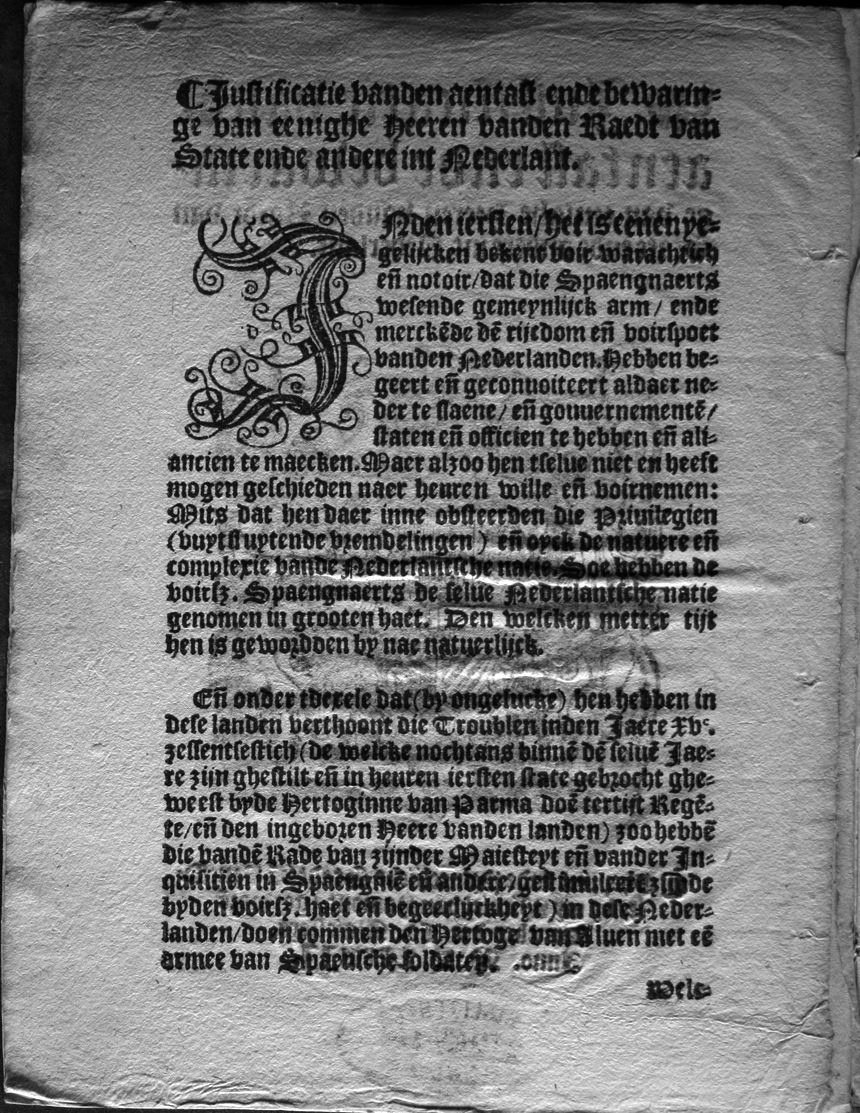 ¶ Justificatie vanden aentast ende bewarin⸗
ge van eenighe Heeren vanden Raedt van
State ende andere int Nederlant.
INden iersten/het is eenen ye⸗
gelijcken bekent voir warachtich
en̄ notoir/dat die Spaengnaerts
wesende gemeynlijck arm/ ende
merckēde dē rijcdom en̄ voirspoet
vanden Nederlanden. Hebben be⸗
geert en̄ geconuoiteert aldaer ne⸗
der te slaene/ en̄ gouuernementē/
staten en̄ officien te hebben en̄ ali⸗
ancien te maecken. Maer alzoo hen tselue niet en heeft
mogen geschieden naer heuren wille en̄ voirnemen:
Mits dat hen daer inne obsteerden die Priuilegien
(vuytsluytende vremdelingen) en̄ oyck de natuere en̄
complexie vande Nederlantsche natie. Soe hebben de
voirsz. Spaengnaerts de selue Nederlantsche natie
genomen in grooten haet. Den welcken metter tijt
hen is gewordden by nae natuerlijck.
En̄ onder tdexele dat (by ongelucke) hen hebben in
dese landen verthoont die Troublen inden Jaere xvᶜ.
zessentsestich (de welcke nochtans binnē dē seluē Jae⸗
re zijn ghestilt en̄ in heuren iersten state gebrocht ghe⸗
weest byde Hertoginne van Parma doē tertijt Regē⸗
te/en̄ den ingeboren Heere vanden landen) zoo hebbē
die vandē Rade van zijnder Maiesteyt en̄ vander In⸗
quisitien in Spaengniē en̄ andere/gestimuleert zijnde
byden voirsz. haet en̄ begeerlijckheyt) in dese Neder⸗
landen/doen commen den Hertoge van Aluen met eē
armee van Spaensche soldaten.
Wels⸗